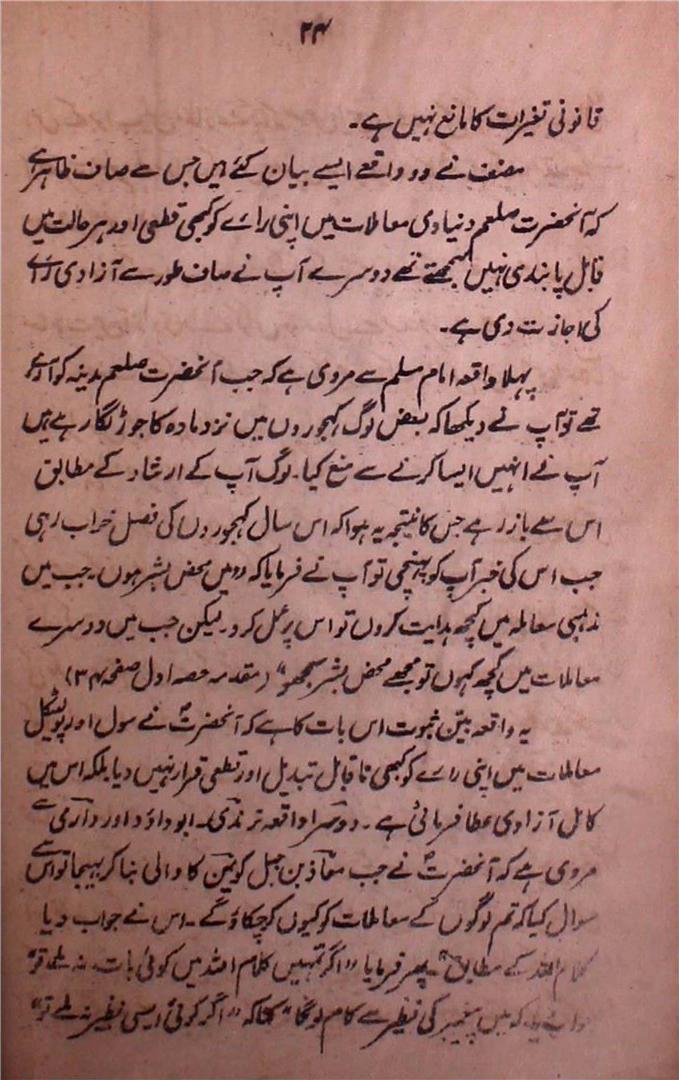 ۲۴
قانونی تغیرات کا مانع نہیں ہے۔
مصنف نے دو واقعے ایسے بیان کئے ہیں جس سے صاف ظاہر ہے
کہ آنحضرت صلعم دنیاوی معاملات میں اپنی رائے کو کبھی قطعی اور ہر حالت میں
قابل پابندی نہیں سمجھتے تھے دوسرے آپ نے صاف طور سے آزادی رائے
کی اجازت دی ہے۔
پہلا واقعہ امام مسلم سے مروی ہے کہ جب آنحضرت صلعم مدینہ کو آرہے
تھے تو آپ نے دیکھا کہ بعض لوگ کہجوروں میں نر و مادہ کا جوڑ لگا رہے ہیں
آپ نے انہیں ایسا کرنے سے منع کیا۔ لوگ آپ کے ارشاد کے مطابق
اس سے باز رہے جس کا نتیجہ یہ ہوا کہ اس سال کہجوروں کی فصل خراب رہی
جب اس کی خبر آپ کو پہنچی تو آپ نے فرمایا کہ ”میں محض بشر ہوں۔ جب میں
مذہبی معاملہ میں کچھ ہدایت کروں تو اس پر عمل کرو۔ لیکن جب میں دوسرے
معاملات میں کچھ کہوں تو مجھے محض بشر سمجھو“ (مقدمہ حصہ اول صفحہ ۳۴)
یہ واقعہ بیّن ثبوت اس بات کا ہے کہ آنحضرتؐ نے سول اور پولیٹکل
معاملات میں اپنی رائے کو کبھی ناقابل تبدیل اور قطعی قرار نہیں دیا بلکہ اس میں
کامل آزادی عطا فرمائی ہے۔ دوسرا واقعہ ترمذی۔ ابوداؤد اور دارمی سے
مروی ہے کہ آنحضرتؐ نے جب معاذ بن جبل کو یمن کا والی بنا کر بہیجا تو اس سے
سوال کیا کہ تم لوگوں کے معاملات کو کیوں کر چکاؤ گے۔ اس نے جواب دیا
کلام اللہ کے مطابق“۔ پھر فرمایا ”اگر تمہیں کلام اللہ میں کوئی بات نہ ملے تو“
کہ میں پیغمبر کی نظیر سے کام لونگا“ کہا کہ ”اگر کوئی ایسی نظیر نہ ملے تو“